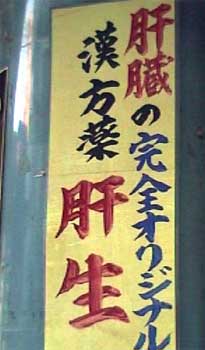 肝臓の完全オリジナル
漢方薬
肝生